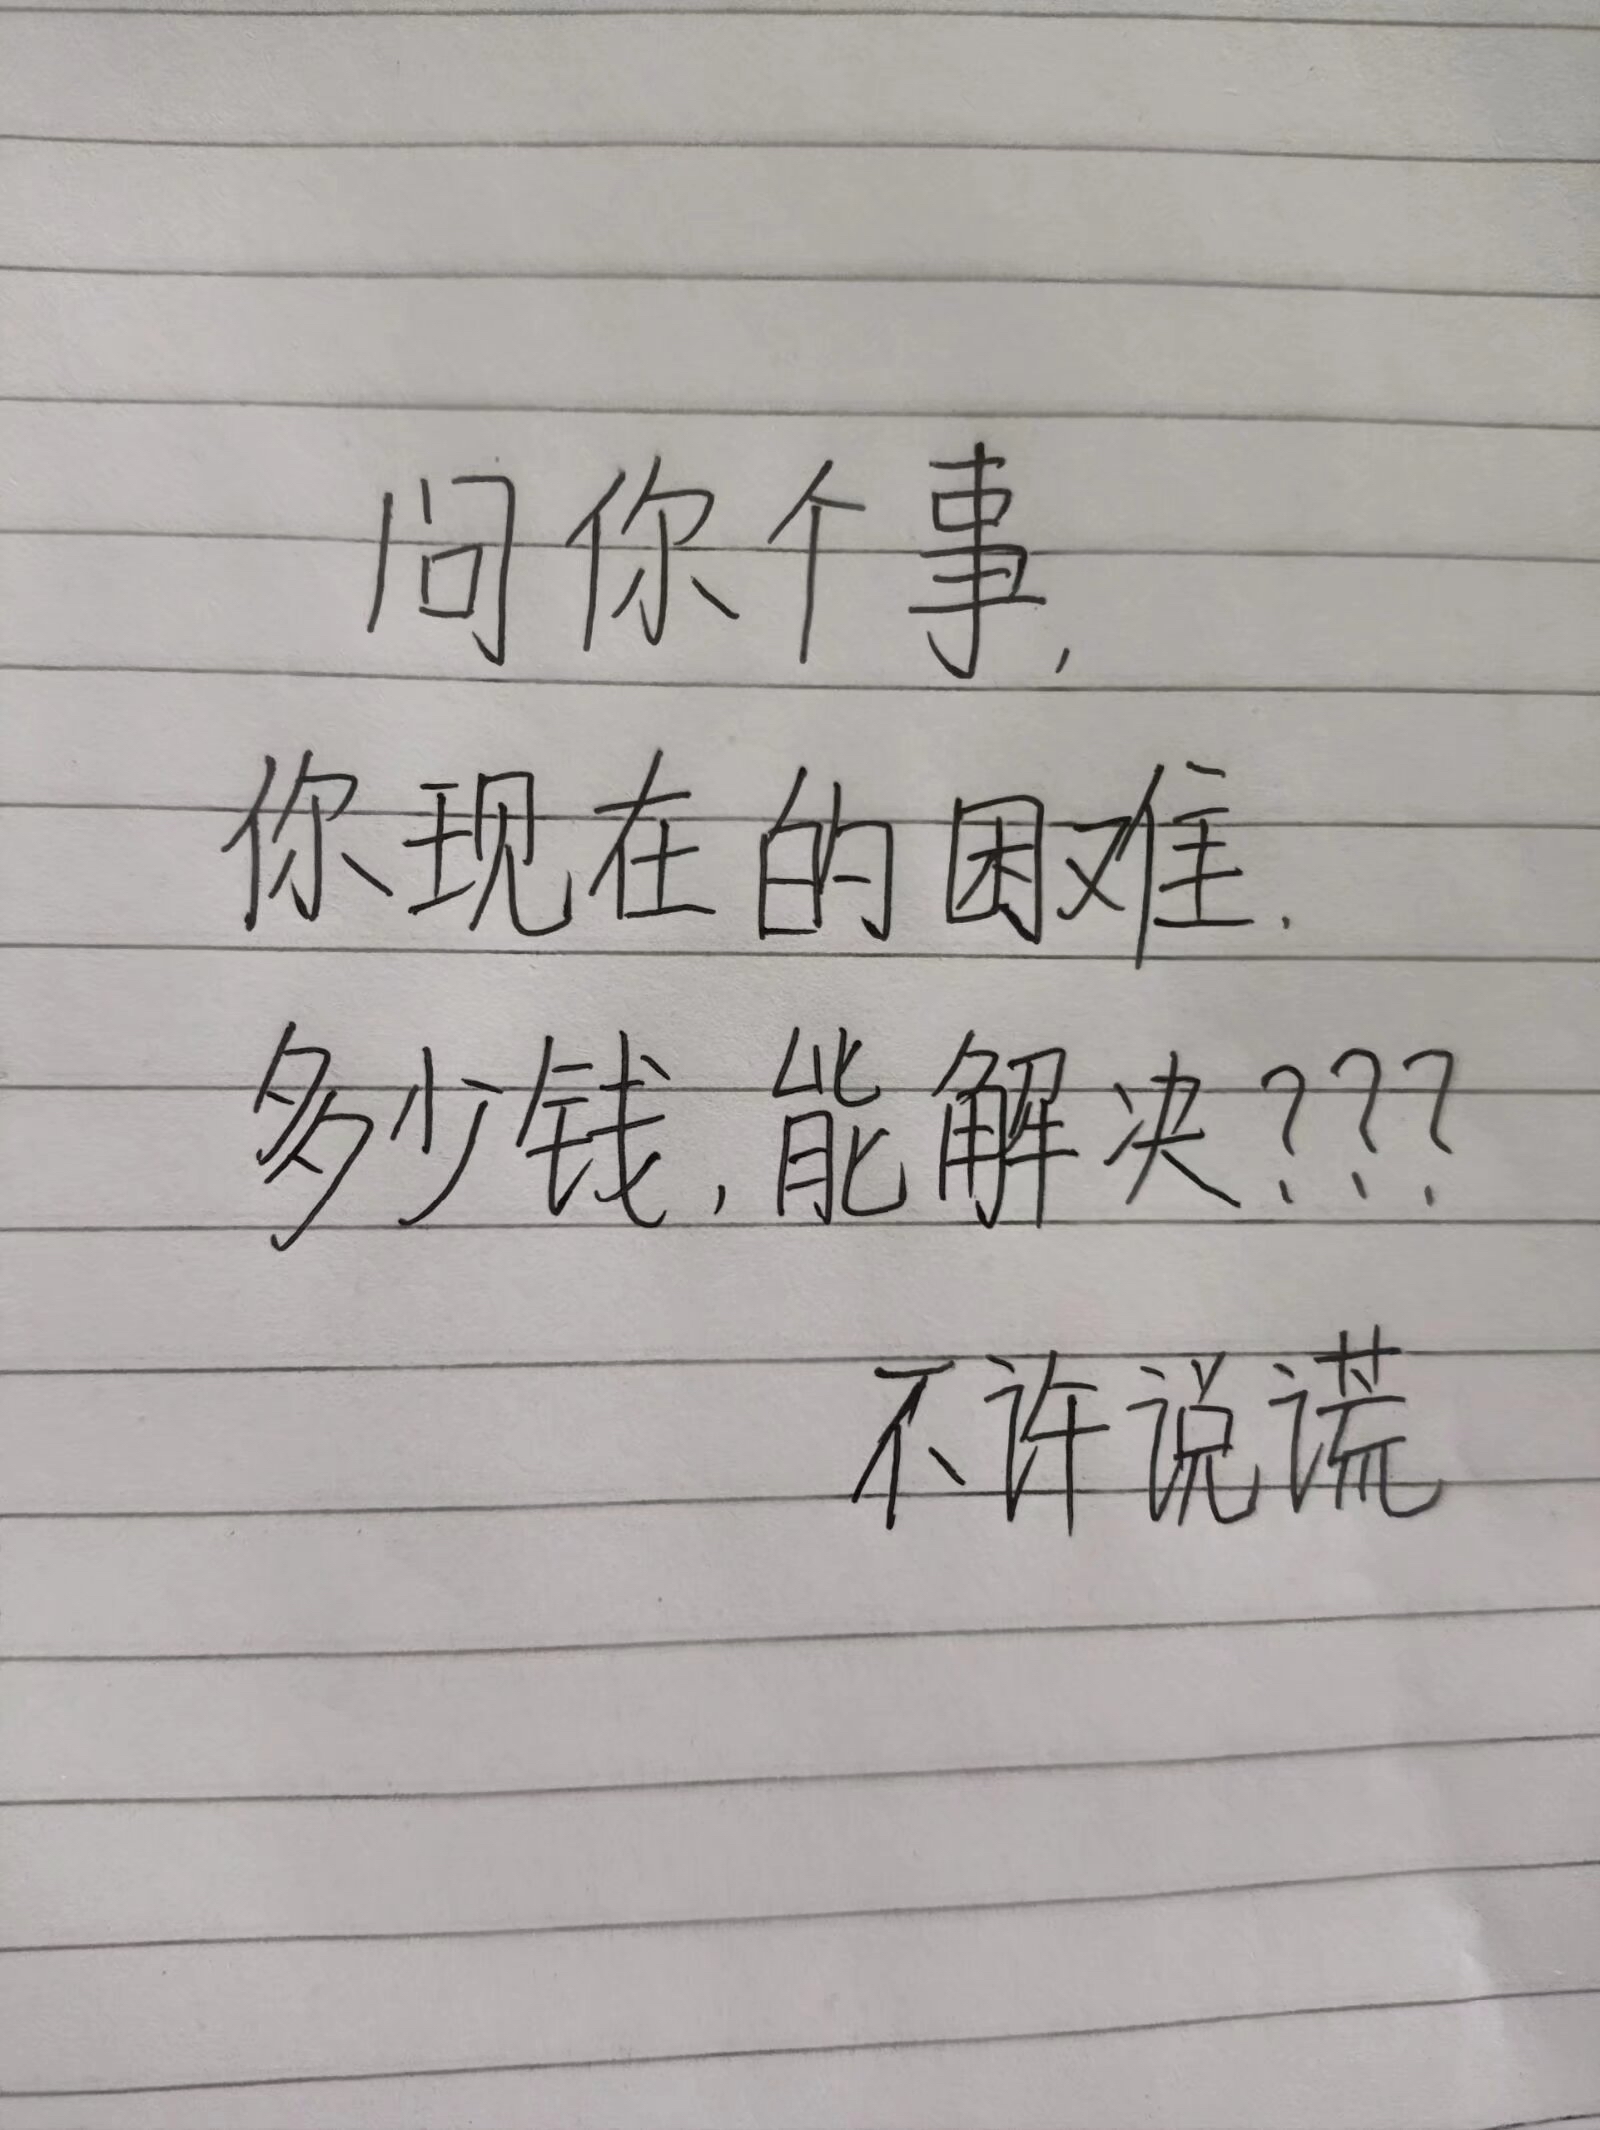 问你个事，
你现在的困难．
多少钱，能解决？？？
不许说谎